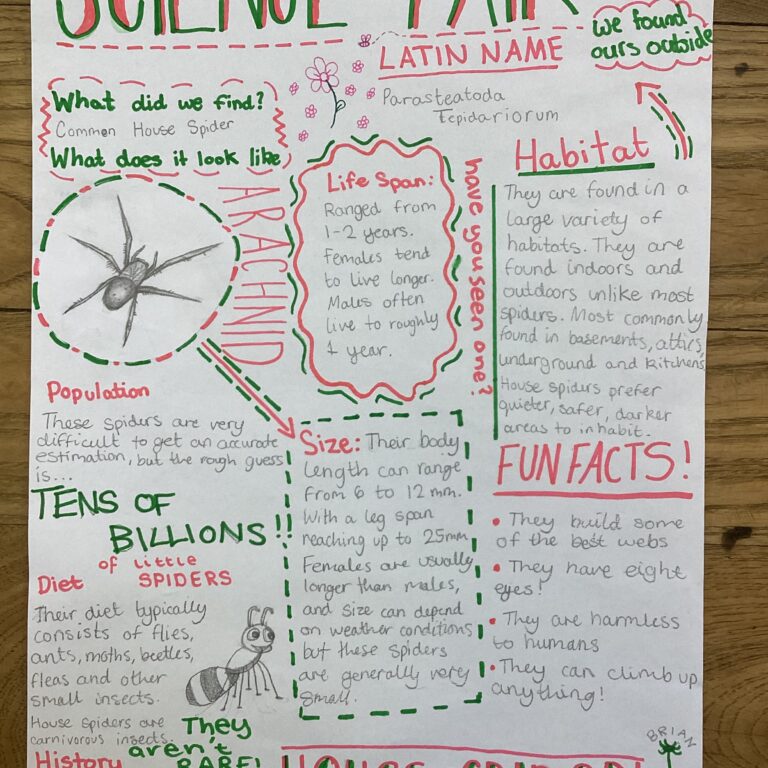 SCIENCE FAIR
LATIN NAME
Parasteatoda
Tepidariorum
we found
ours outside
What did we find?
Common House Spider
What does it look like
ARACHNID
Life Span:
Ranged from
1-2 years.
Females tend
to live longer.
Males often
live to roughly
1 year.
have you seen one?
Habitat
They are found in a
large variety of
habitats. They are
found indoors and
outdoors unlike most
spiders. Most commonly
found in basements, attics,
underground and kitchens.
House spiders prefer
quieter, safer, darker
areas to inhabit.
Population
These spiders are very
difficult to get an accurate
estimation, but the rough guess
is...
TENS OF
BILLIONS!!
of little
SPIDERS
Size: Their body
length can range
from 6 to 12 mm.
With a leg span
reaching up to 25mm.
Females are usually
longer than males,
and size can depend
on weather conditions
but these spiders
are generally very
small.
FUN FACTS!
• They build some
of the best webs
• They have eight
eyes!
• They are harmless
to humans
• They can climb up
anything!
Diet
Their diet typically
consists of flies,
ants, moths, beetles,
fleas and other
small insects.
House spiders are
carnivorous insects.
They
aren't
RARE!
History
BRIAN
HOUSE SPIDER!